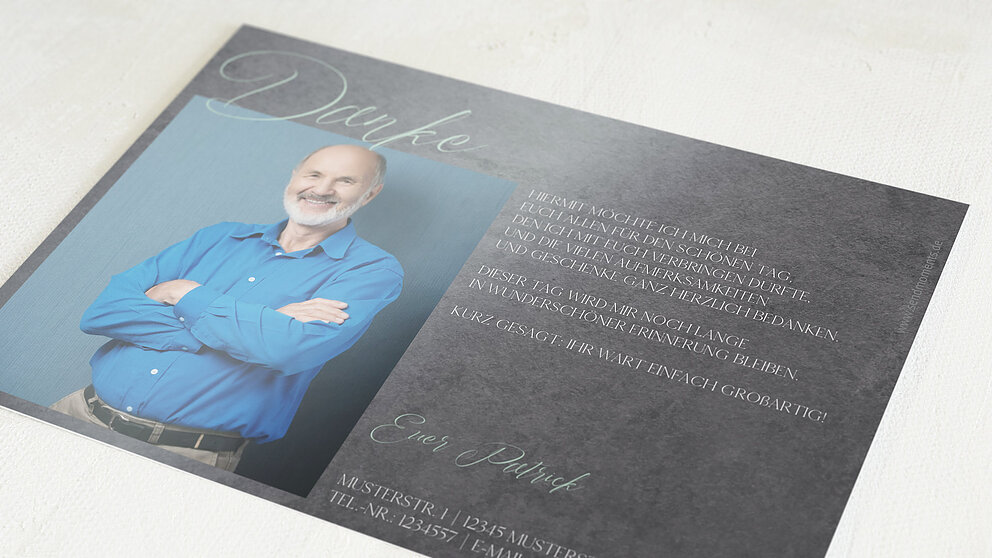 Danke
HIERMIT MÖCHTE ICH MICH BEI
EUCH ALLEN FÜR DEN SCHÖNEN TAG,
DEN ICH MIT EUCH VERBRINGEN DURFTE,
UND DIE VIELEN AUFMERKSAMKEITEN
UND GESCHENKE GANZ HERZLICH BEDANKEN.
DIESER TAG WIRD MIR NOCH LANGE
IN WUNDERSCHÖNER ERINNERUNG BLEIBEN.
KURZ GESAGT: IHR WART EINFACH GROßARTIG!
Euer Patrick
MUSTERSTR. 1 | 12345 MUSTERST
TEL.-NR.: 1234557 | E-MAIL